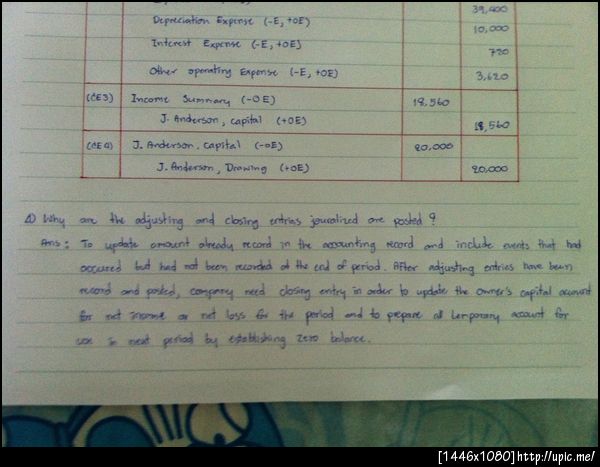 39,400
Depreciation Expense (-E, +OE) 10,000
Interest Expense (-E, +OE) 720
Other operating Expense (-E, +OE) 3,620
(CE3) Income Summary (-OE) 18,560
J. Anderson, capital (+OE) 18,560
(CE4) J. Anderson, Capital (-OE) 20,000
J. Anderson, Drawing (+OE) 20,000
4) Why are the adjusting and closing entries jouralized are posted ?
Ans : To update amount already record in the accounting record and include events that had
occured but had not been recorded at the end of period. After adjusting entries have been
record and posted, company need closing entry in order to update the owner's capital account
for net income or net loss for the period and to prepare all temporary account for
use in next period by establishing zero balance.
[1446x1080]http://upic.me/